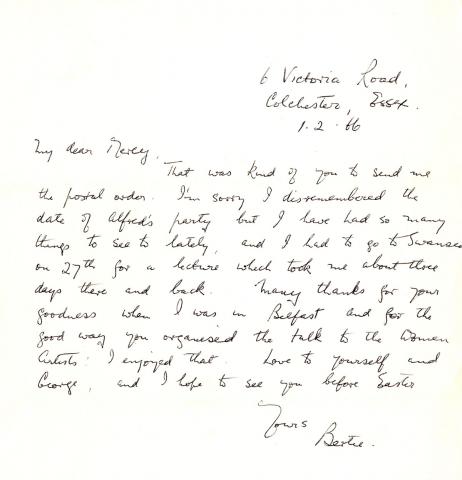 6 Victoria Road,
Colchester, Essex.
1.2.66
My dear Mercy,
That was kind of you to send me
the postal order. I'm sorry I disremembered the
date of Alfred's party but I have had so many
things to see to lately, and I had to go to Swansea
on 27th for a lecture which took me about three
days there and back. Many thanks for your
goodness when I was in Belfast and for the
good way you organised the talk to the Women
Artists: I enjoyed that. Love to yourself and
George, and I hope to see you before Easter
Yours
Bertie.